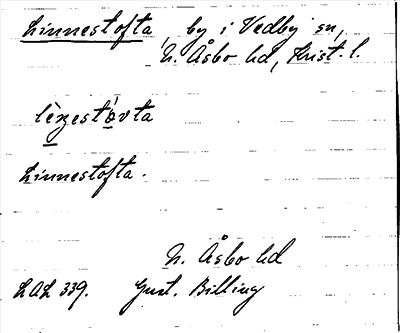 Linnestofta, by i Vedby sn,
N. Åsbo hd, Krist. l.
Linnestofta.
N. Åsbo hd
LAL 339. Gust. Billing